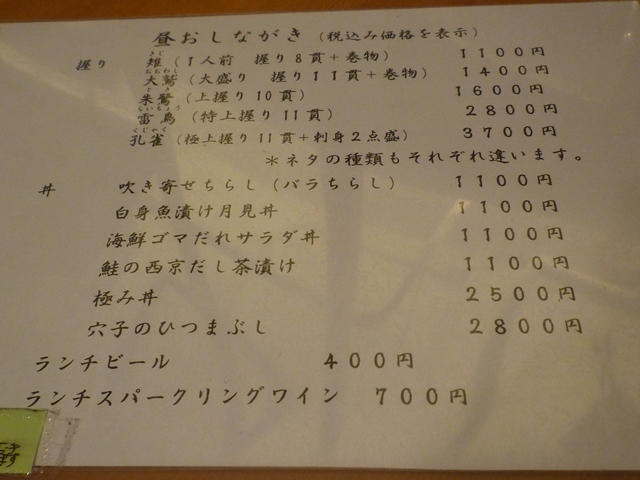 昼おしながき（税込み価格を表示）
握り 雉（１人前 握り８貫＋巻物） １１００円
大鷲（大盛り 握り１１貫＋巻物） １４００円
朱鷺（上握り１０貫） １６００円
雷鳥（特上握り１１貫） ２８００円
孔雀（極上握り１１貫＋刺身２点盛） ３７００円
＊ネタの種類もそれぞれ違います。
丼 吹き寄せちらし（バラちらし） １１００円
白身魚漬け月見丼 １１００円
海鮮ゴマだれサラダ丼 １１００円
鮭の西京だし茶漬け １１００円
極み丼 ２５００円
穴子のひつまぶし ２８００円
ランチビール ４００円
ランチスパークリングワイン ７００円